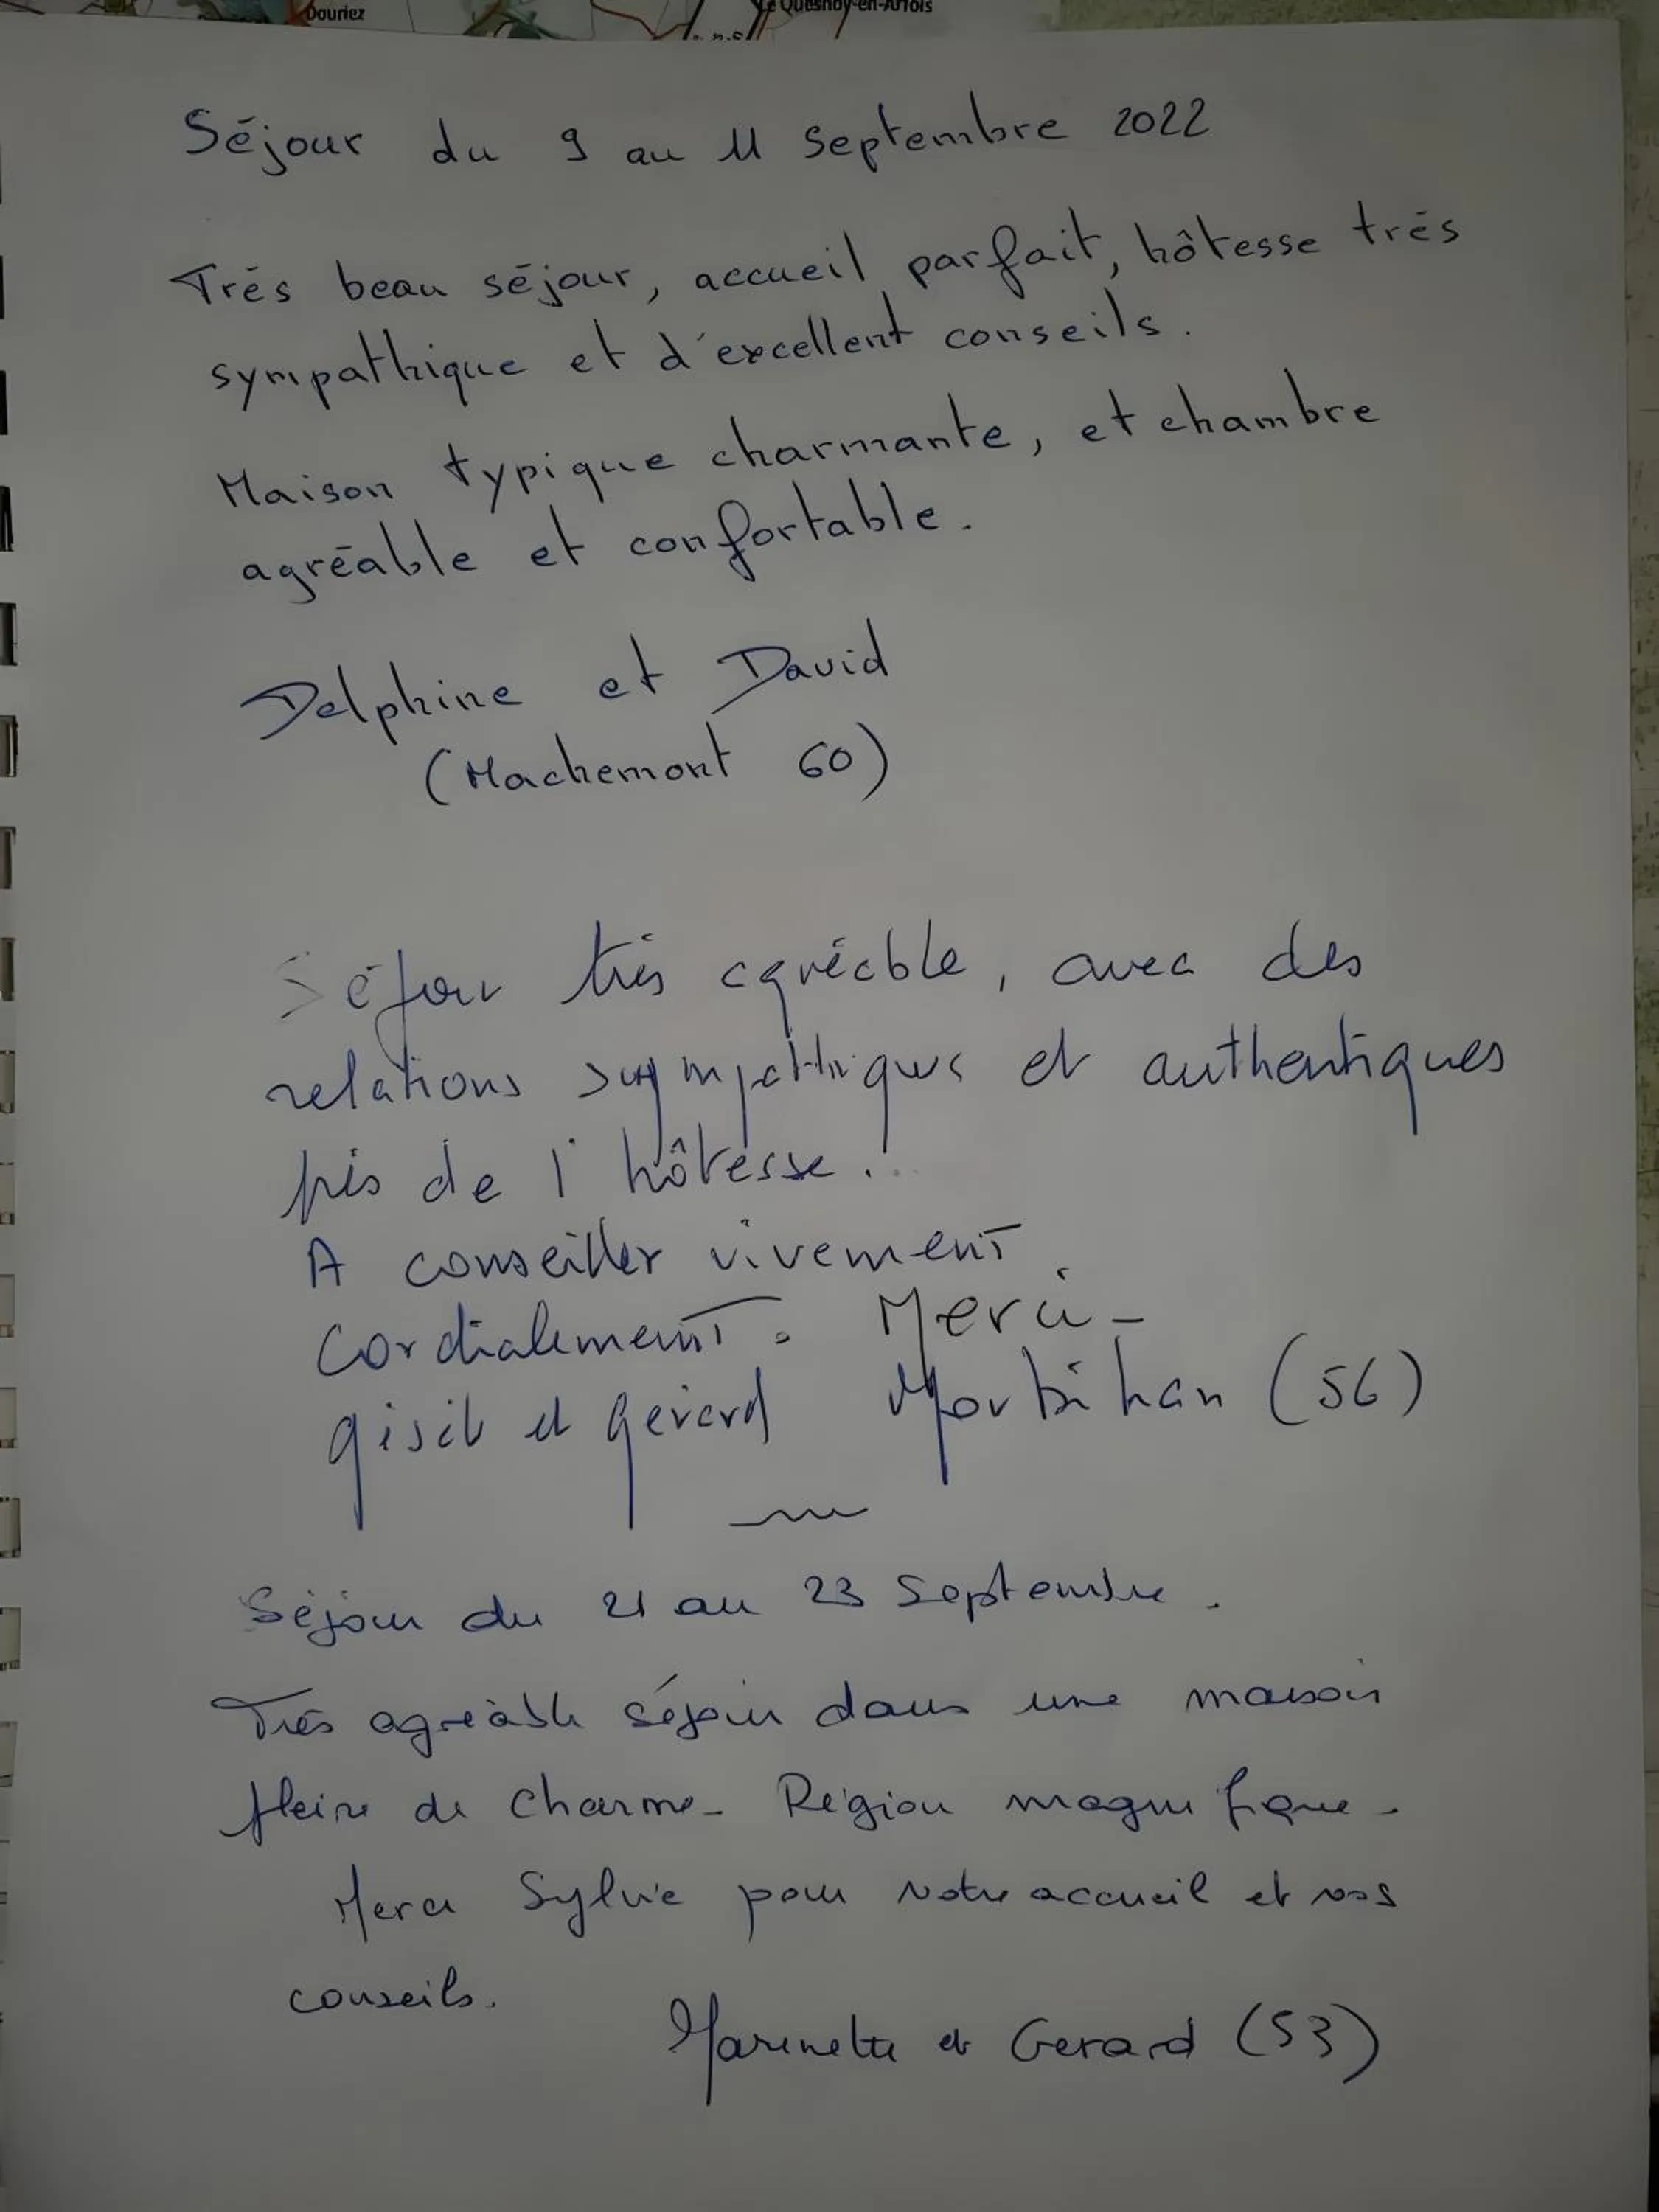 Douriez
Le Quesnoy-en-Artois
Séjour du 9 au 11 Septembre 2022
Très beau séjour, accueil parfait, hôtesse très
sympathique et d'excellent conseils.
Maison typique charmante, et chambre
agréable et confortable.
Delphine et David
(Machemont 60)
Séjour très agréable, avec des
relations sympathiques et authentiques
près de l'hôtesse.
A conseiller vivement.
Cordialement. Merci -
gisèle et gérard Morbihan (56)
Séjour du 21 au 23 Septembre.
Très agréable séjour dans une maison
pleine de charme - Région magnifique -
Merci Sylvie pour notre accueil et vos
conseils.
Marinette et Gerard (53)